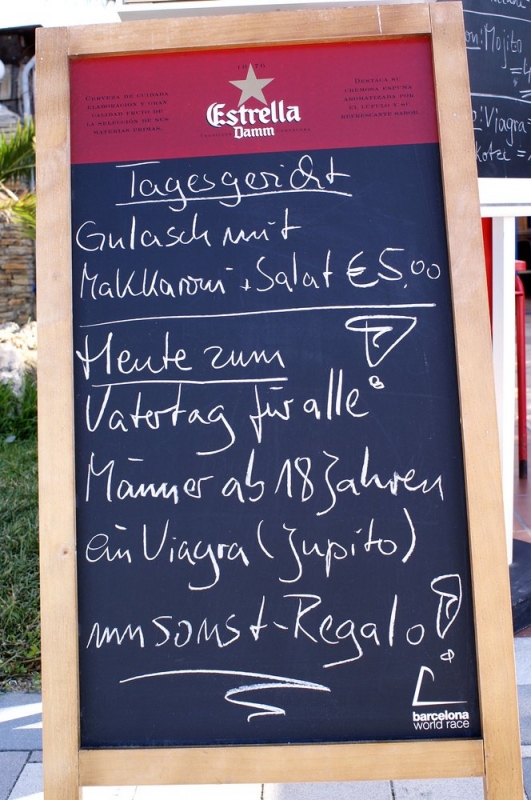 1876
Estrella
Damm
CERVEZA DE CUIDADA
ELABORACIÓN Y GRAN
CALIDAD FRUTO DE
LA SELECCIÓN DE SUS
MATERIAS PRIMAS.
DESTACA SU
CREMOSA ESPUMA
AROMATIZADA POR
EL LÚPULO Y SU
REFRESCANTE SABOR.
Tagesgericht
Gulasch mit
Makkaroni + Salat € 5,00
Heute zum
Vatertag für alle
Männer ab 18 Jahren
ein Viagra (Jupito)
umsonst-Regalo!
barcelona
world race
Mojito
Viagra